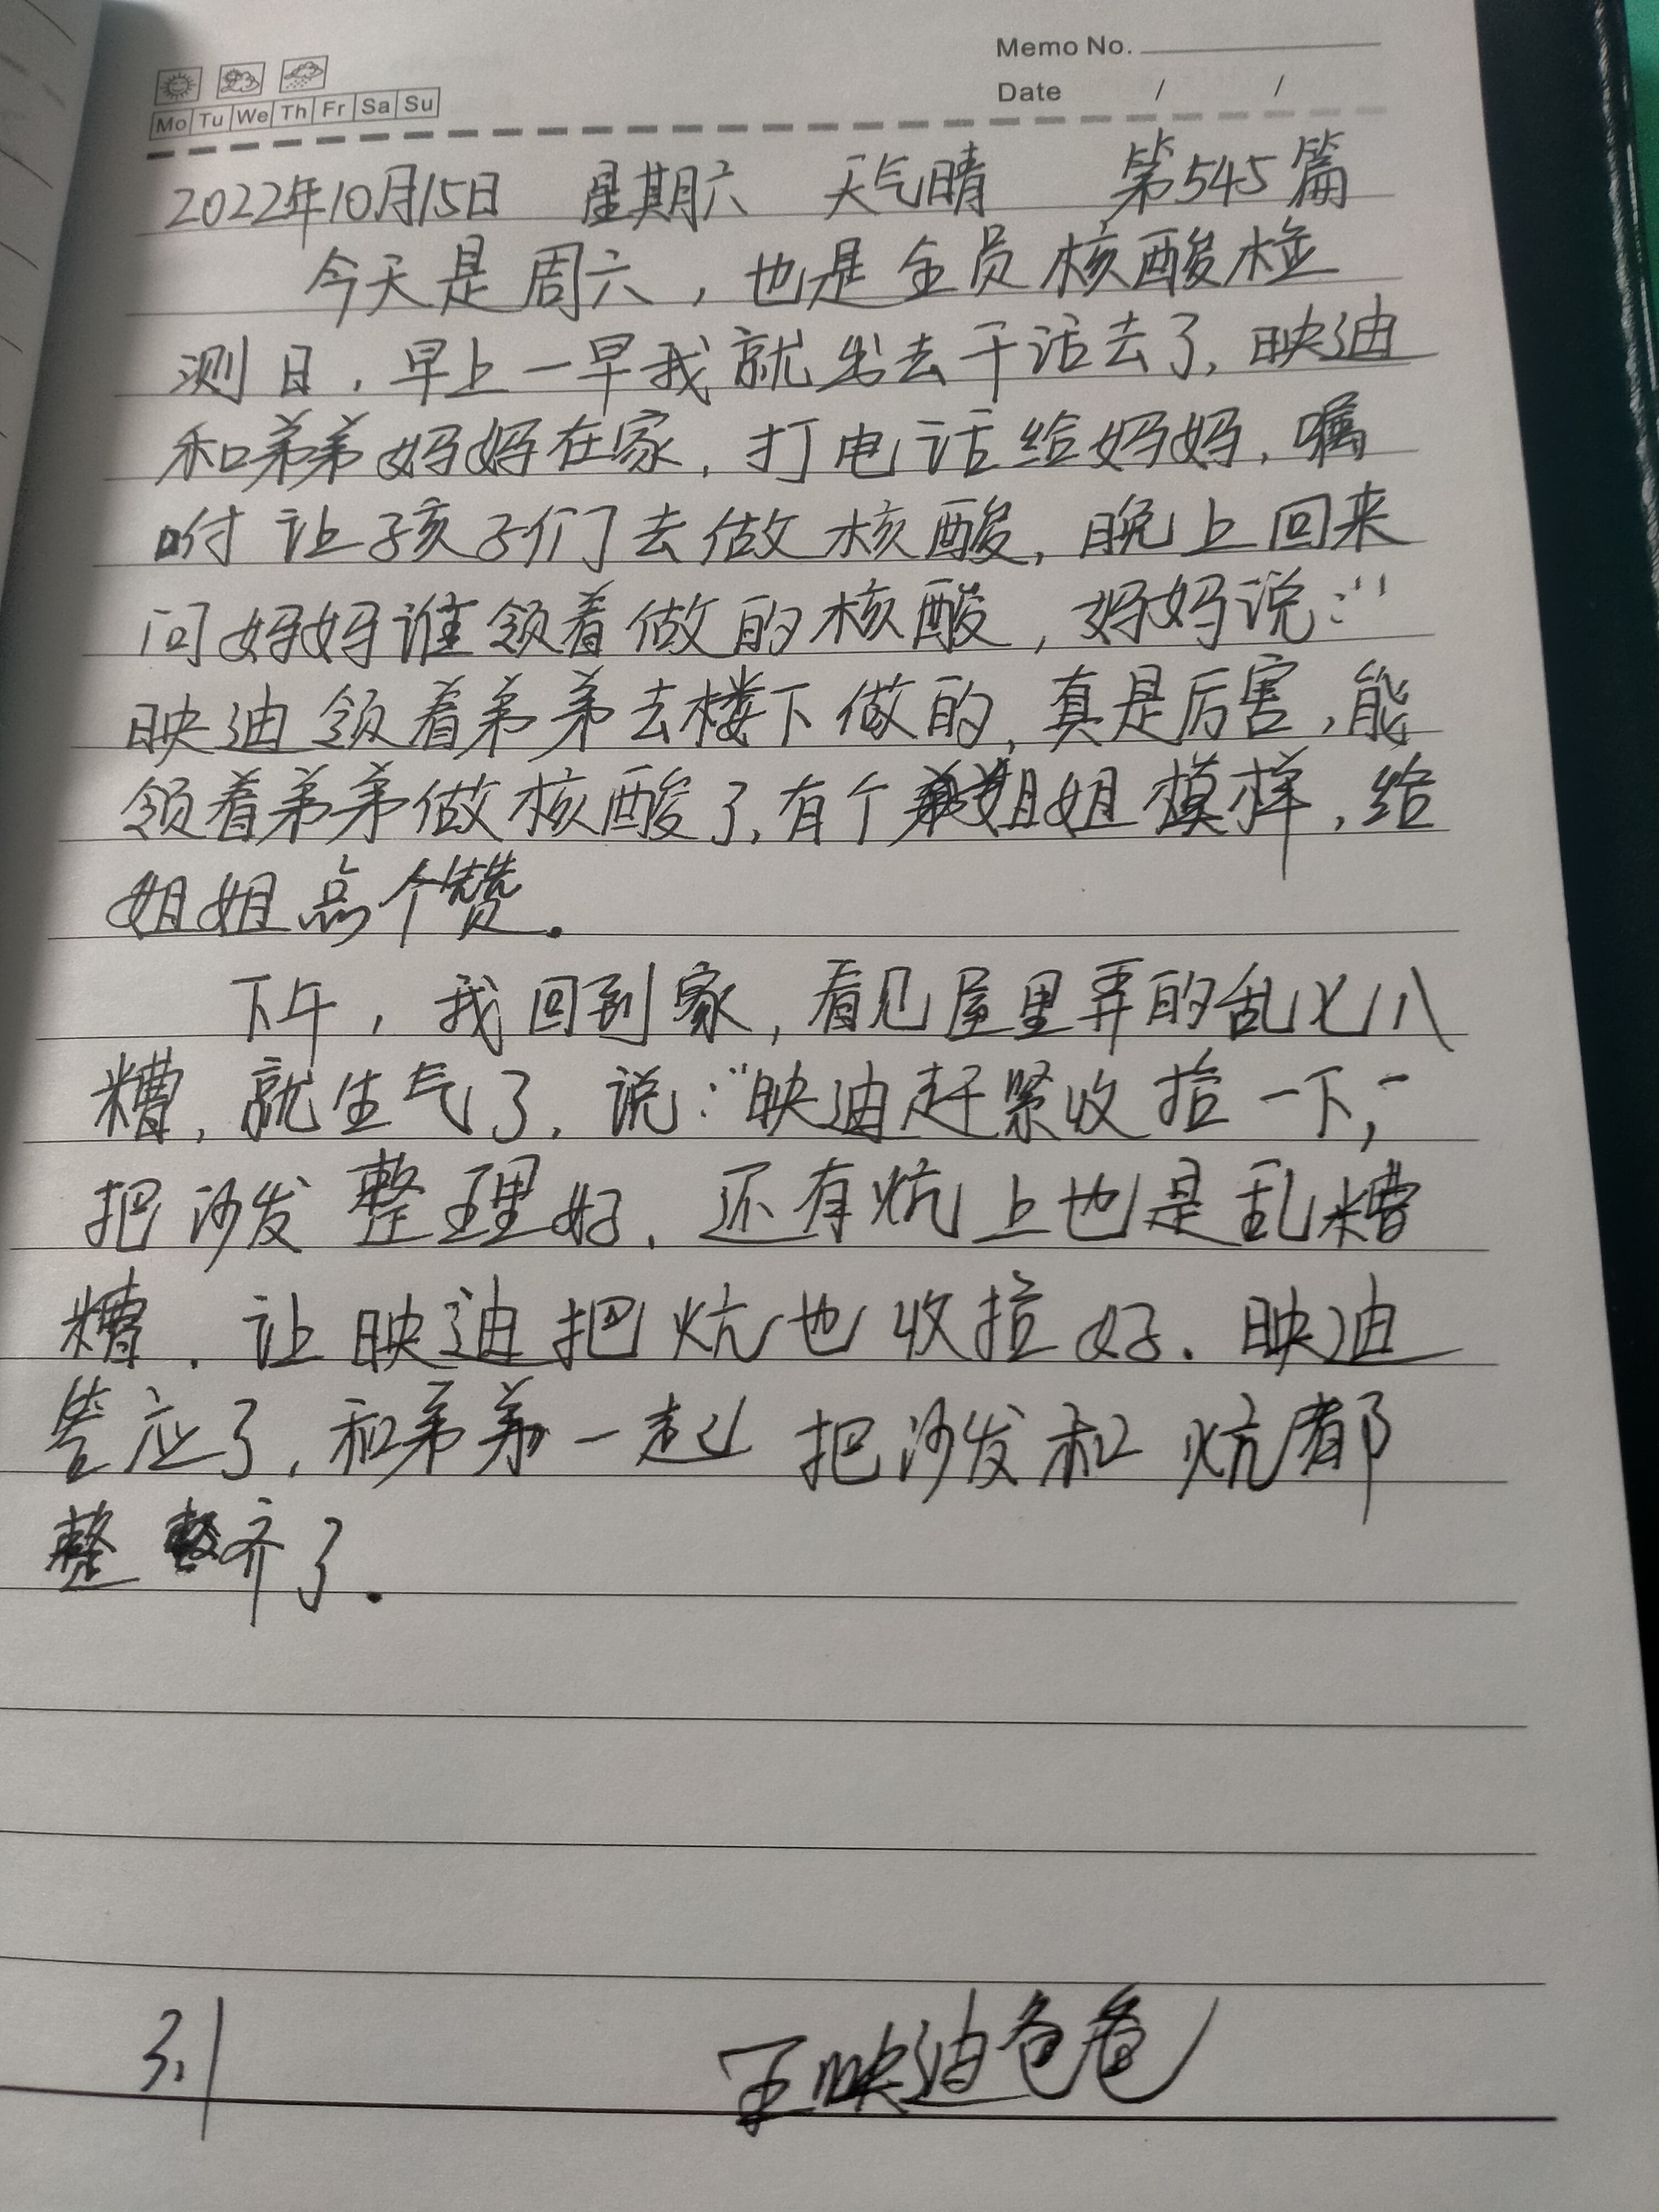 Memo No.
Mo Tu We Th Fr Sa Su
Date / /
2022年10月15日 星期六 天气晴 第545篇
今天是周六，也是全员核酸检
测日，早上一早我就出去干活去了，映迪
和弟弟妈妈在家，打电话给妈妈，嘱
咐让孩子们去做核酸，晚上回来
问妈妈谁领着做的核酸，妈妈说：“
映迪领着弟弟去楼下做的，真是厉害，能
领着弟弟做核酸了，有个姐姐模样，给
姐姐点个赞。
下午，我回到家，看见屋里弄的乱七八
糟，就生气了，说：“映迪赶紧收拾一下，”
把沙发整理好，还有炕上也是乱糟
糟，让映迪把炕也收拾好．映迪
答应了，和弟弟一起把沙发和炕都
整齐了．
3.1 王映迪爸爸